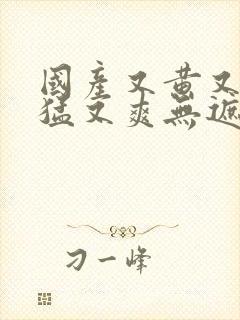 國產又黄又
猛又爽無遮
刁一峰